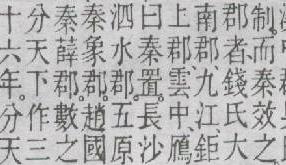 制。而秦效之
郡者錢氏大
南郡九江鉅
上郡雲中、鴈
曰秦置。長沙
泗水郡。五原
秦象郡。趙國
秦薛郡。數之
分天下作三
十六年。分天